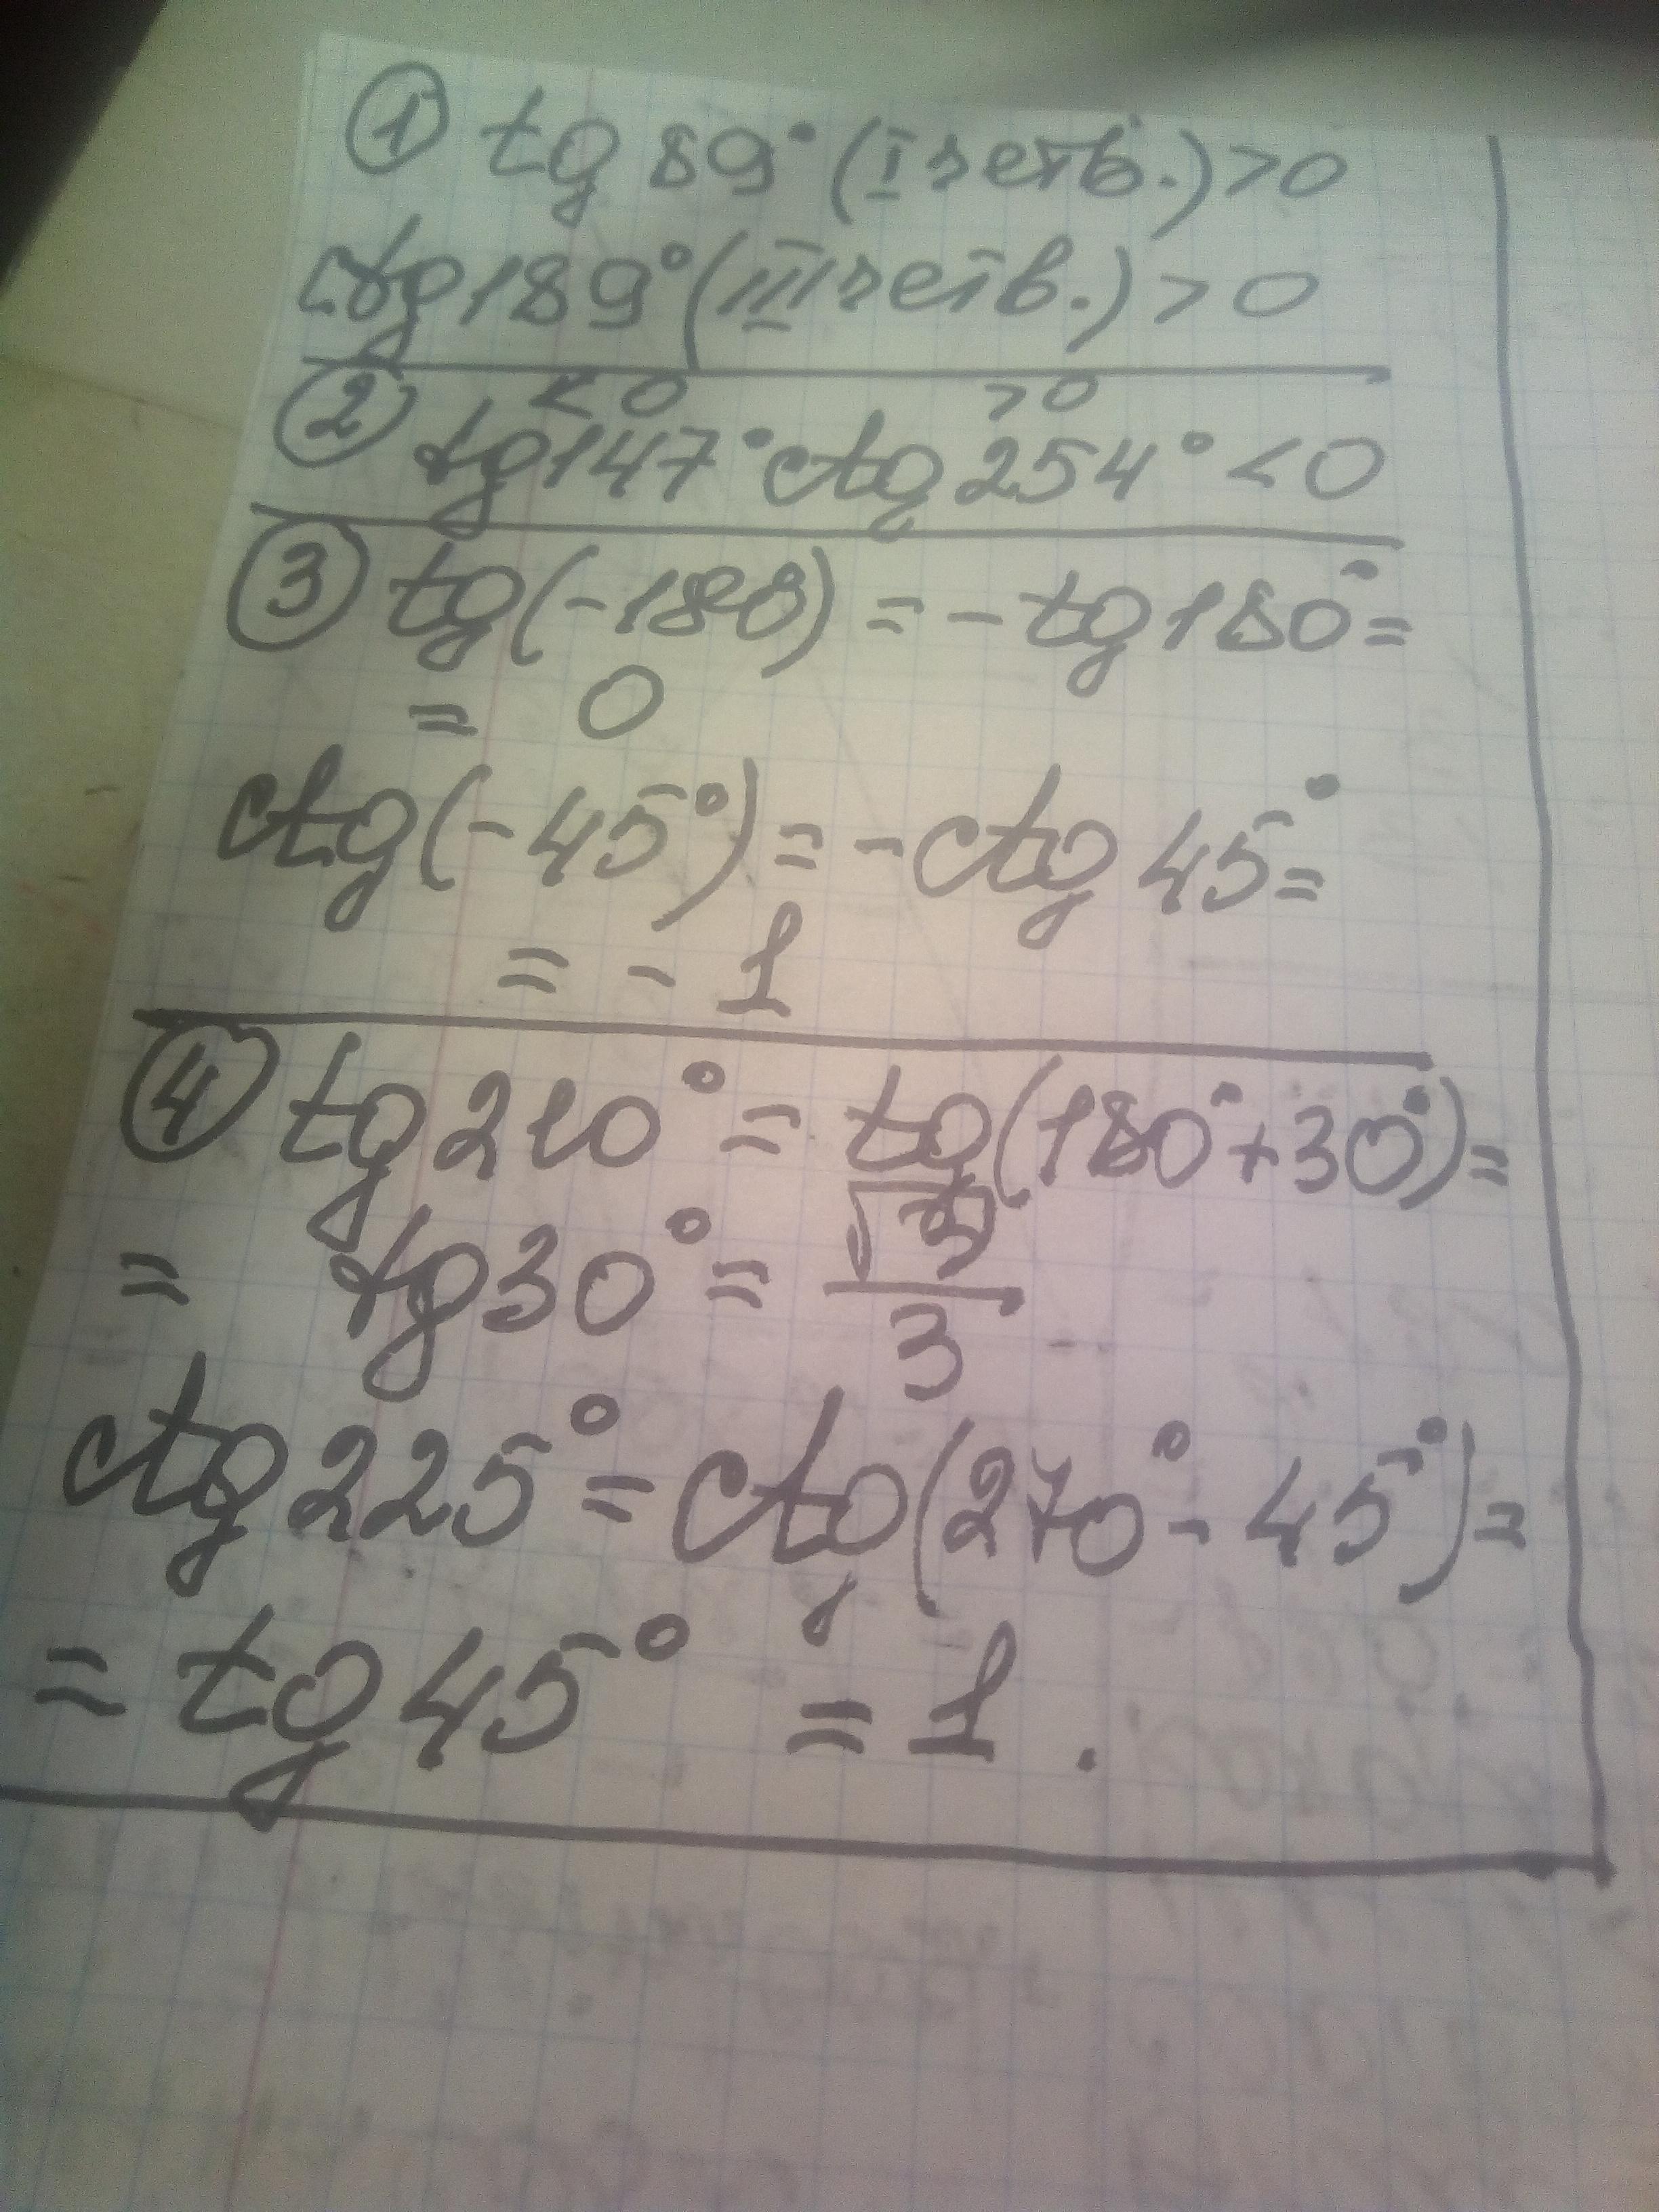 ① tg 89° (I четв.) >0
ctg 189° (III четв.) >0
<0 >0
② tg147° ctg 254° <0
③ tg(-180) = -tg 180° =
= 0
ctg(-45°) = -ctg 45° =
= -1
④ tg 210° = tg(180°+30°) =
= tg30° = √3/3
ctg 225° = ctg(270° - 45°) =
= tg 45° = 1.